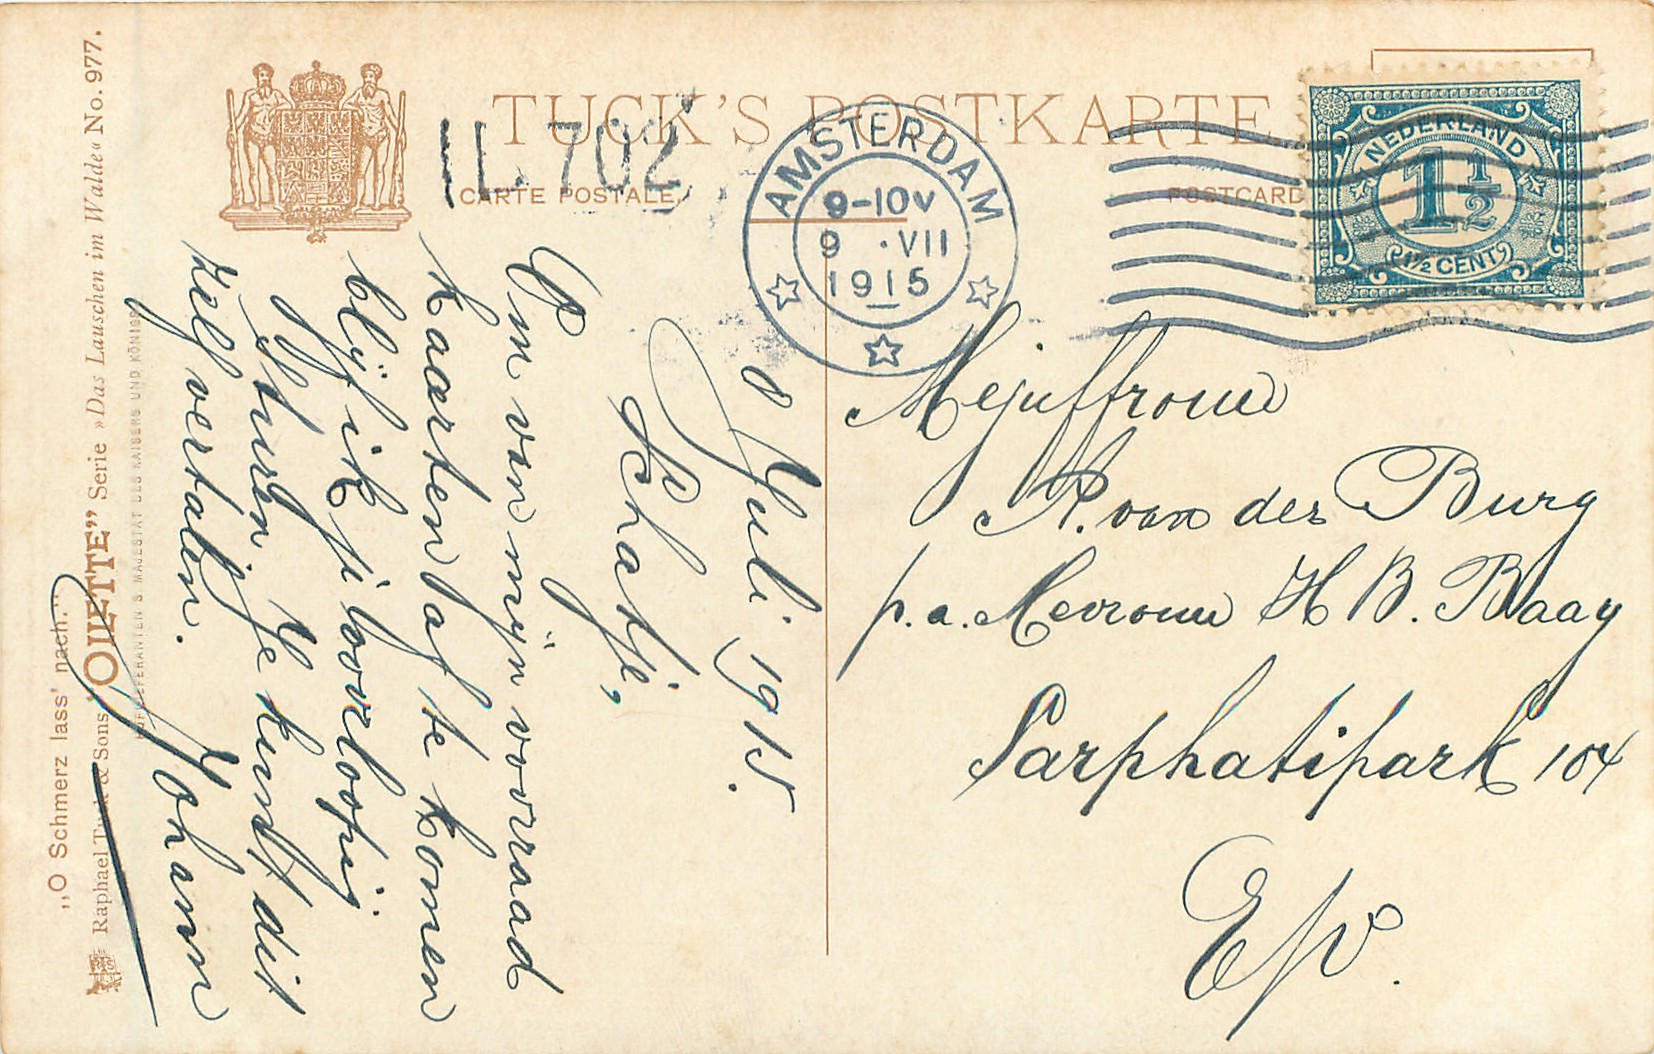 TUCK'S POSTKARTE
CARTE POSTALE
POSTCARD
11.702
AMSTERDAM
9-10V
9 .VII
1915
NEDERLAND
1 1/2
1½ CENT
Mejuffrouw
R. van der Burg
p.a. Mevrouw H B. Baay
Sarphatipark 104
E/v.
Juli 1915.
Schatje,
Om van mijn voorraad
kaarten af te komen
blijf ik je voorloopig
sturen. Je kunt dit
zelf vertalen.
Johann
„O Schmerz lass' nach."
Raphael Tuck & Sons "OILETTE" Serie »Das Lauschen im Walde« No. 977.
HOFLIEFERANTEN S. MAJESTÄT DES KAISERS UND KÖNIGS